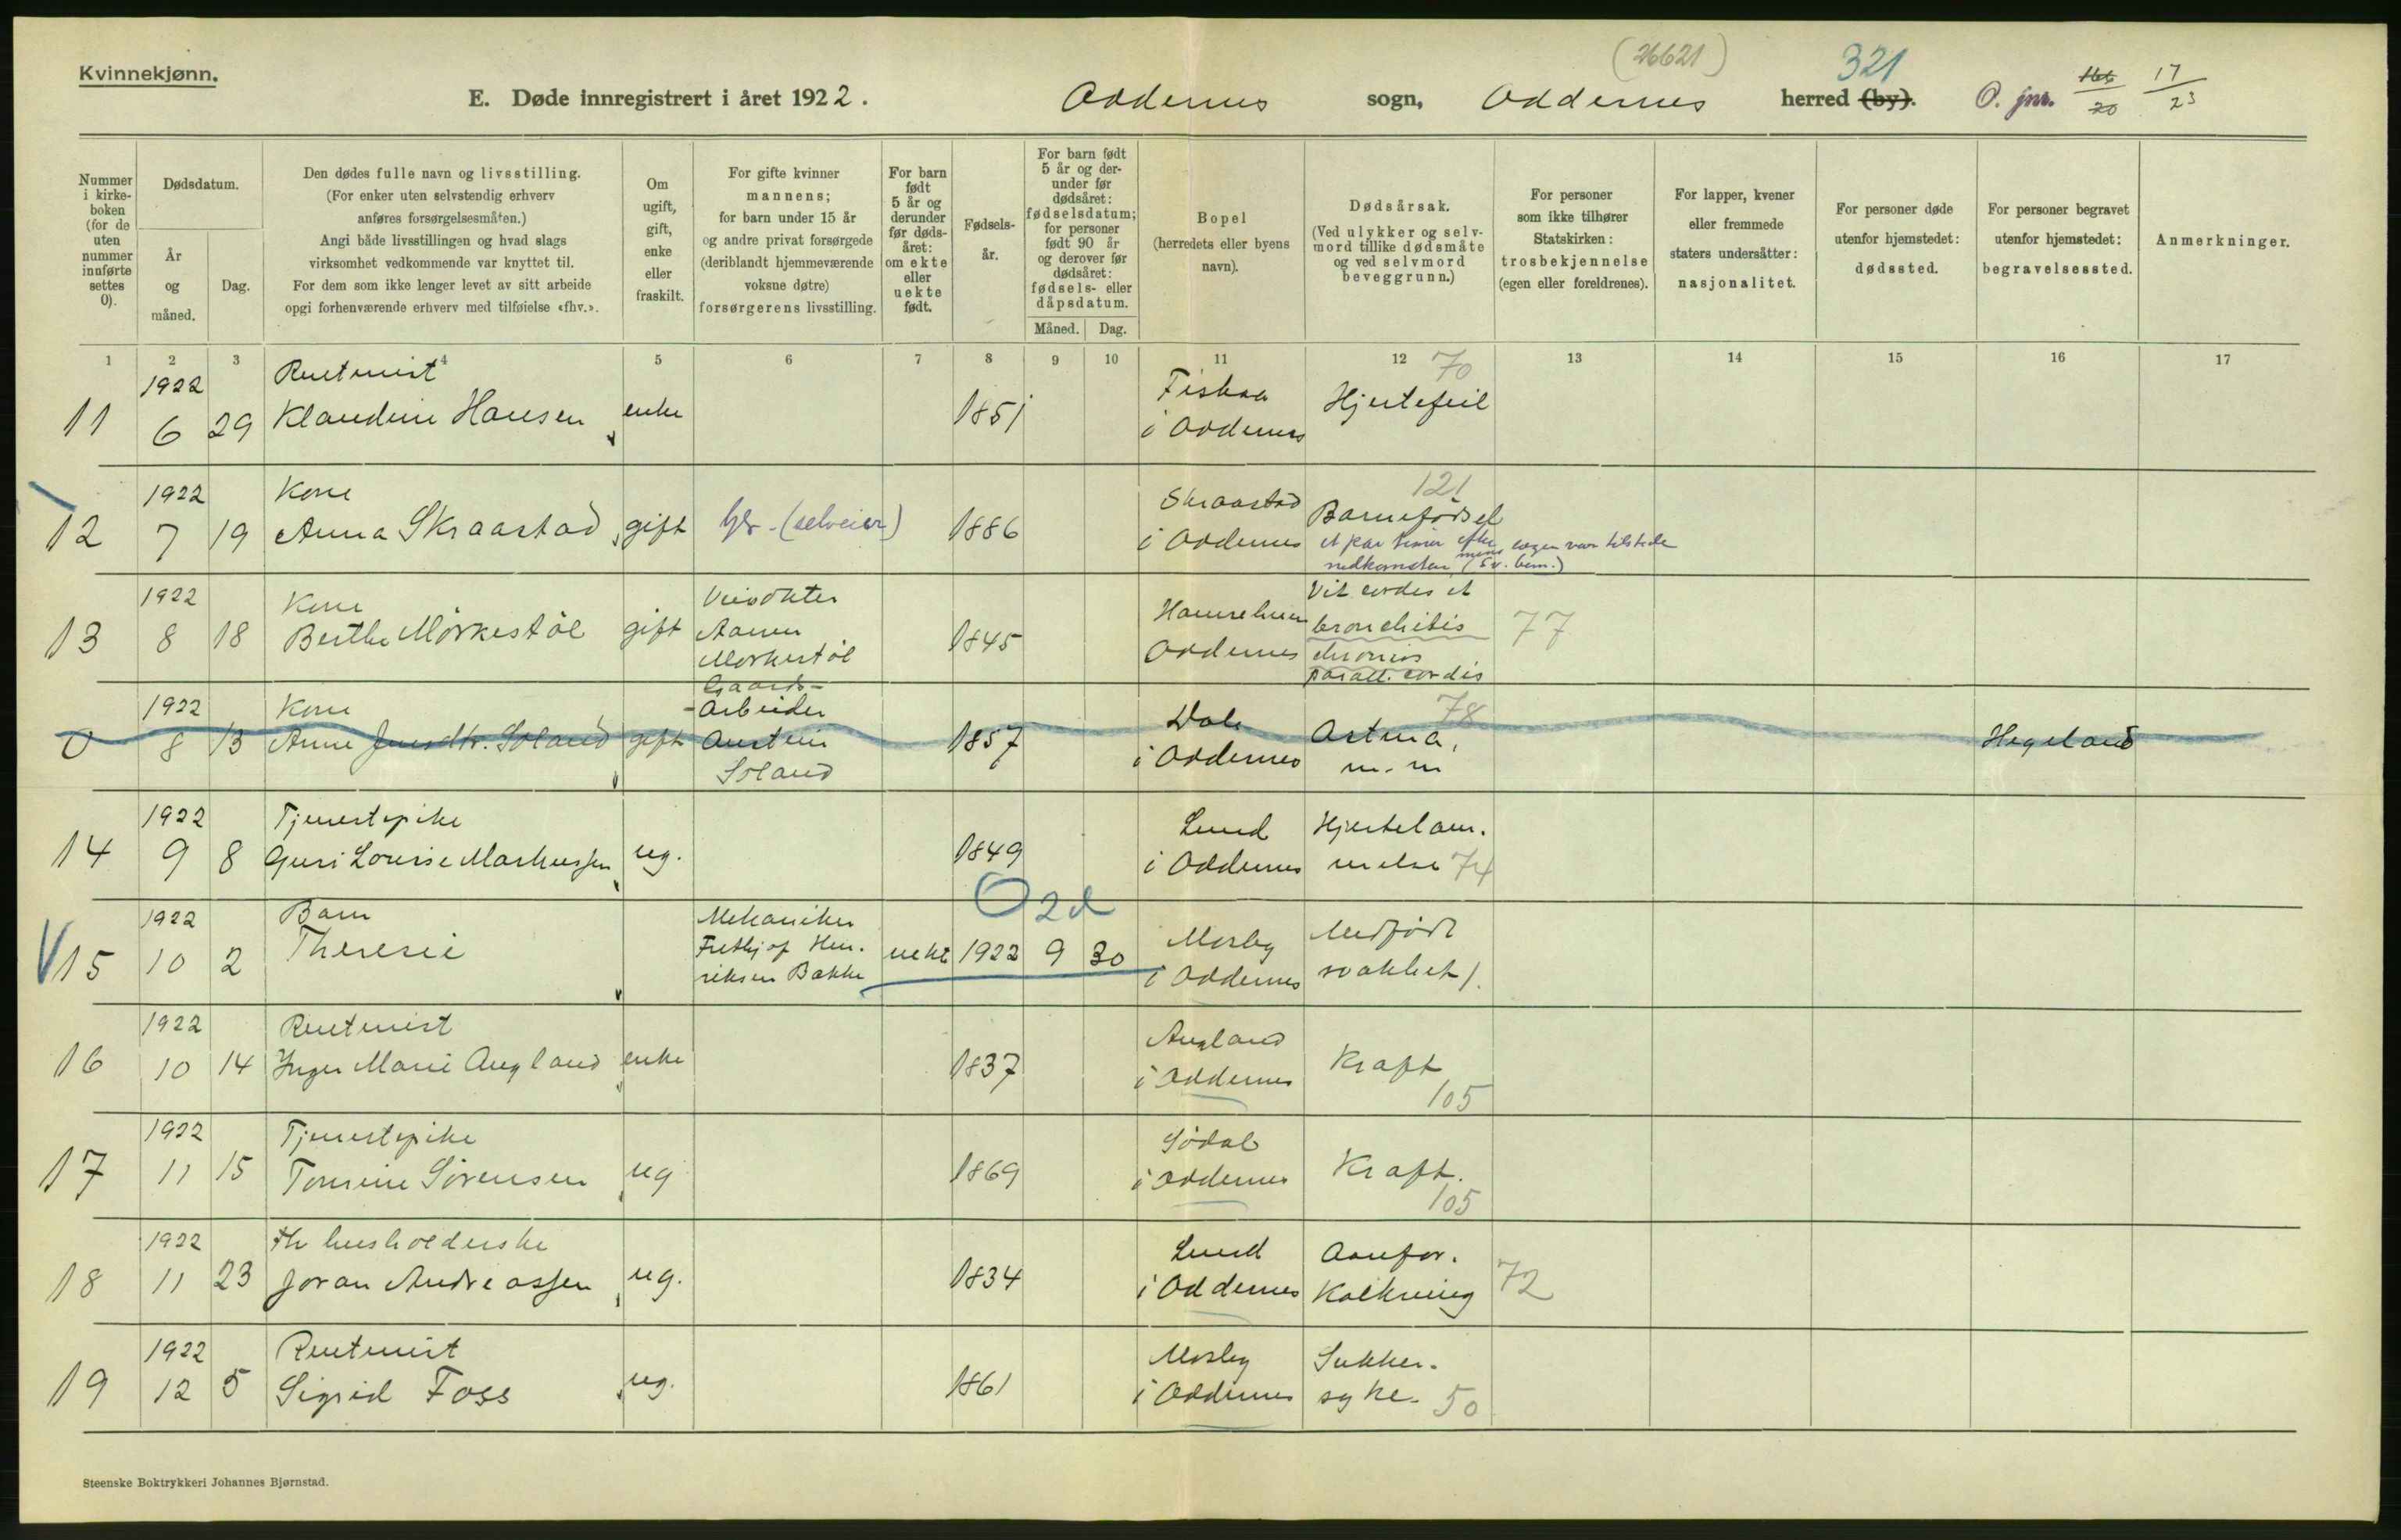 Kvinnekjønn.
E. Døde innregistrert i året 1922. Oddernes sogn, Oddernes herred (by).
(26621) 321 O. jnr. 166/20 17/23
Nummer i kirke-boken (for de uten nummer innførte settes 0).
Dødsdatum.
År og måned.
Dag.
Den dødes fulle navn og livsstilling.
(For enker uten selvstendig erhverv
anføres forsørgelsesmåten.)
Angi både livsstillingen og hvad slags
virksomhet vedkommende var knyttet til.
For dem som ikke lenger levet av sitt arbeide
opgi forhenværende erhverv med tilføielse «fhv.».
Om ugift, gift, enke eller fraskilt.
For gifte kvinner
mannens;
for barn under 15 år
og andre privat forsørgede
(deriblandt hjemmeværende
voksne døtre)
forsørgerens livsstilling.
For barn født 5 år og derunder før døds-året: om ekte eller uekte født.
Fødsels-år.
For barn født 5 år og der-under før dødsåret: fødselsdatum; for personer født 90 år og derover før dødsåret: fødsels- eller dåpsdatum.
Måned. Dag.
Bopel
(herredets eller byens
navn).
Dødsårsak.
(Ved ulykker og selv-
mord tillike dødsmåte
og ved selvmord
beveggrunn.)
For personer
som ikke tilhører
Statskirken:
trosbekjennelse
(egen eller foreldrenes).
For lapper, kvener
eller fremmede
staters undersåtter:
nasjonalitet.
For personer døde
utenfor hjemstedet:
dødssted.
For personer begravet
utenfor hjemstedet:
begravelsessted.
Anmerkninger.
1 2 3 4 5 6 7 8 9 10 11 12 13 14 15 16 17
1922 Rentenist Fiskaa 70
11 6 29 Klaudine Hansen enke 1851 i Oddernes Hjertefeil
1922 Kone Skraastad 121
12 7 19 Anna Skraastad gift (selveier) 1886 i Oddernes Barnefødsel
et par timer efter nedkomsten mens lægen var tilstede
1922 Kone Vit. cordis et
13 8 18 Berthe Mørkestøl gift Mørkestøl 1845 Oddernes bronchitis 77
chronica
paral. cordis
1922 Kone Gaards-Arbeider Dale 78
0 8 13 Anne Jensdtr. Soland gift Austein Soland 1857 i Oddernes Astma, m.m Hegeland
1922 Tjenestepike Lund Hjertelam-
14 9 8 Guri Lovise Markussen ug. 1849 i Oddernes melse 74
0 2d
1922 Barn Mekaniker Mosby Medfødt
15 10 2 Therese Frithjof Henriksen Bakke uekte 1922 9 30 i Oddernes svakhet
1922 Rentenist Augland
16 10 14 Inger Marie Augland enke 1837 i Oddernes Kræft 105
1922 Tjenestepike Sødal
17 11 15 Tomine Sørensen ug 1869 i Oddernes Kræft. 105
1922 fh husholderske Lund Aarefor-
18 11 23 Joran Andreassen ug. 1834 i Oddernes kalkning 72
1922 Rentenist Mosby Sukker-
19 12 5 Sigrid Foss ug. 1861 i Oddernes syke. 50
Steenske Boktrykkeri Johannes Bjørnstad.